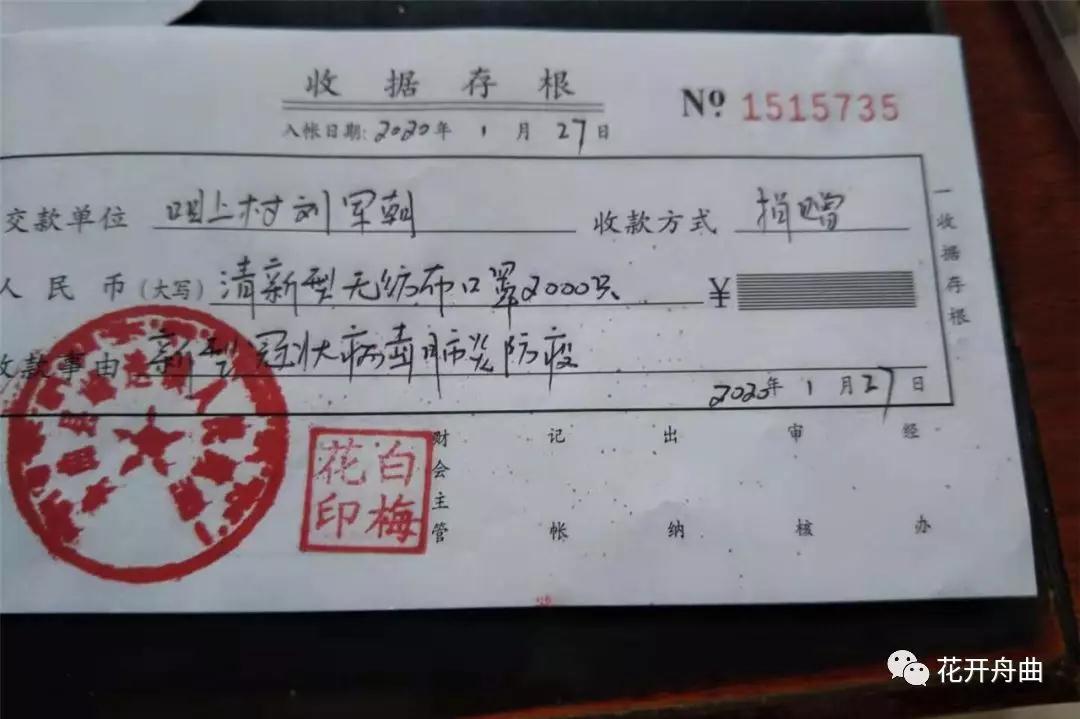 收据存根
№ 1515735
入帐日期: 2020年 1 月 27日
交款单位 咀上村刘军朝 收款方式 捐赠
人民币(大写) 清新型无纺布口罩2000只 ¥
收款事由 新型冠状病毒肺炎防疫
2020年 1 月 27 日
一收据存根
财会主管 记帐 出纳 审核 经办
白梅花印
花开舟曲